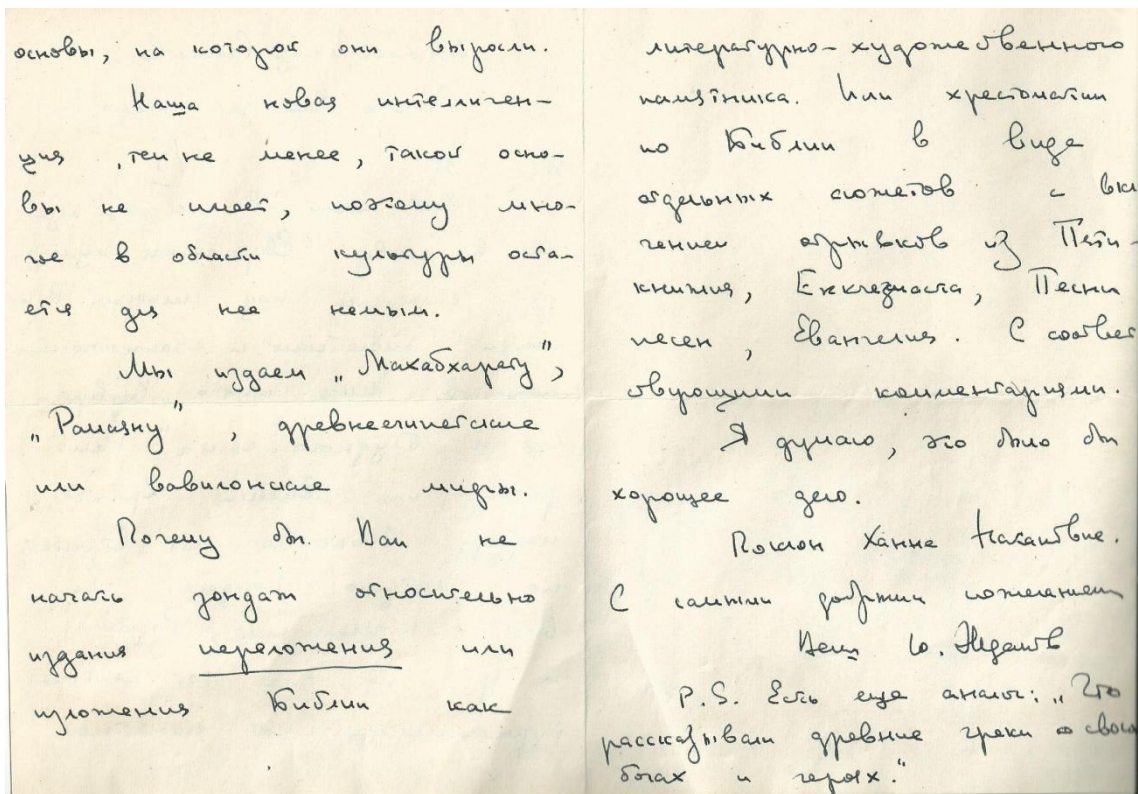 основы, на которой они выросли.
Наша новая интеллиген-
ция, тем не менее, такой осно-
вы не имеет, поэтому мно-
гое в области культуры оста-
ется для нее немым.
Мы издаем „Махабхарату",
„Рамаяну", древнеегипетские
или вавилонские мифы.
Почему бы Вам не
начать зондаж относительно
издания переложения или
изложения Библии как
литературно-художественного
памятника. Или хрестоматии
по Библии в виде
отдельных сюжетов с вкл
чением отрывков из Пяти-
книжия, Екклезиаста, Песни
песен, Евангелия. С соответ
ствующими комментариями.
Я думаю, это было бы
хорошее дело.
Поклон Ханне
С самыми добрыми пожеланиями
Ваш Ю. Жданов
P.S. Есть еще аналог: „Что
рассказывали древние греки о своих
богах и героях."